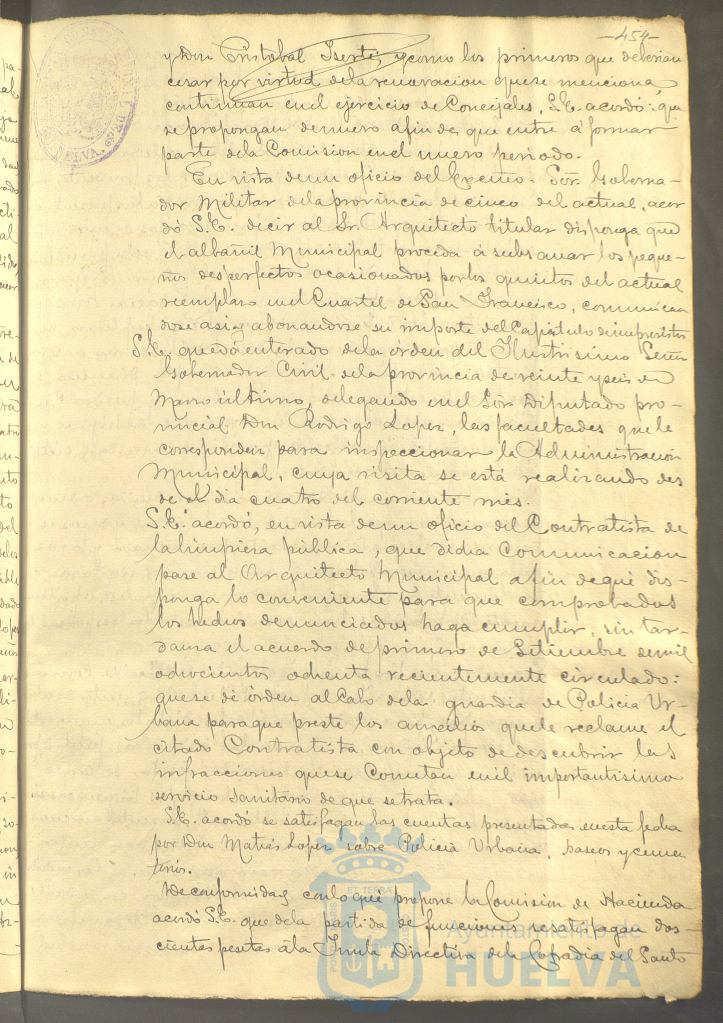 -454-
y Don Cristobal Iserte, y como los primeros que deberian
cesar por virtud de la renovacion que se menciona,
continuan en el ejercicio de Concejales, S.E. acordó: que
se propongan de nuevo a fin de que entre á formar
parte de la Comision en el nuevo periodo.
En vista de un oficio del Excmo. Sor. Goberna-
dor Militar de la provincia de cinco del actual, acor
dó S.E. decir al Sr. Arquitecto titular disponga que
el albañil Municipal proceda á subsanar los peque-
ños desperfectos ocasionados por los quintos del actual
reemplazo en el Cuartel de San Francisco, comunican
dose asi y abonandose su importe del Capitulo de imprevistos
S.E. quedó enterado de la órden del Ilustrisimo Señor
Gobernador Civil de la provincia de veinte y seis de
Marzo último, delegando en el Sor Diputado pro-
vincial Don Rodrigo Lopez, las facultades que le
corresponden para inspeccionar la Administracion
Municipal, cuya visita se está realizando des
de el dia cuatro del corriente mes.
S.E. acordó, en vista de un oficio del Contratista de
la limpieza pública, que didia comunicacion
pase al Arquitecto Municipal a fin de que dis-
ponga lo conveniente para que comprobados
los hechos denunciados haga cumplir, sin tar-
danza el acuerdo de primero de Setiembre de mil
ochocientos ochenta recientemente circulado:
que se dé órden al Cabo de la guardia de Policia Ur-
bana para que preste los auxilios que le reclame el
citado Contratista con objeto de descubrir las
infracciones que se cometan en el importantisimo
servicio sanitario de que se trata.
S.E. acordó se satisfagan las cuentas presentadas en esta fecha
por Don Matias Lopez sobre Policia Urbana, paseos y cemen
terios.
De conformidad con lo que propone la Comision de Hacienda
acordó S.E. que de la partida de funciones se satisfagan dos-
cientas pesetas á la Junta Directiva de la Cofradia del Santo
Ayuntamiento de
HUELVA